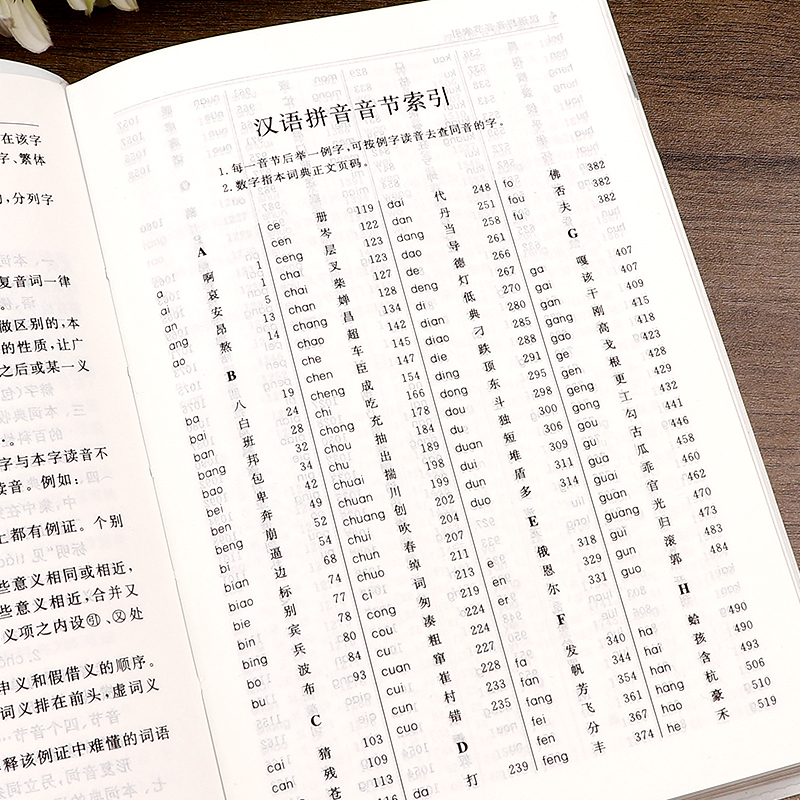 在该字
字、繁体
分列字
复音词一律
做区别的,本
的性质,让广
之后或某一义
字与本字读音不
读音。例如:
上都有例证。个别
些意义相同或相近,
些意义相近,合并又
义项之内设㊁、㊂处
申义和假借义的顺序。
词义排在前头,虚词义
释该例证中难懂的词语
汉语拼音音节索引
1. 每一音节后举一例字,可按例字读音去查同音的字。
2. 数字指本词典正文页码。
A
a 啊 1
ai 哀 1
an 安 5
ang 昂 13
ao 熬 14
B
ba 八 19
bai 白 24
ban 班 28
bang 邦 32
bao 包 34
bei 卑 42
ben 奔 49
beng 崩 52
bi 逼 54
bian 边 68
biao 标 74
bie 别 77
bin 宾 78
bing 兵 80
bo 波 84
bu 布 93
C
cai 猜 103
can 残 109
苍 113
116
ce 册 119
cen 岑 122
ceng 层 123
cha 叉 123
chai 柴 127
chan 婵 128
chang 昌 134
chao 超 142
che 车 145
chen 臣 147
cheng 成 154
chi 吃 166
chong 充 178
chou 抽 184
chu 出 189
chuai 揣 198
chuan 川 199
chuang 创 202
chui 吹 204
chun 春 207
chuo 绰 211
ci 词 213
cong 匆 219
cou 凑 224
cu 粗 224
cuan 窜 227
cui 崔 228
cun 村 233
cuo 错 235
D
da 打 239
dai 代 248
dan 丹 251
dang 当 258
dao 导 261
de 德 266
deng 灯 267
di 低 270
dian 典 280
diao 刁 285
die 跌 288
ding 顶 291
dong 东 295
dou 斗 298
du 独 300
duan 短 306
dui 堆 309
dun 盾 311
duo 多 314
E
e 俄 318
en 恩 329
er 尔 331
F
fa 发 340
fan 帆 344
fang 芳 354
fei 飞 361
fen 分 367
feng 丰 374
fo 佛 382
fou 否 382
fu 夫 382
G
ga 嘎 407
gai 该 407
gan 干 409
gang 刚 415
gao 高 418
ge 戈 423
gen 根 428
geng 更 429
gong 工 432
gou 勾 441
gu 古 446
gua 瓜 458
guai 乖 460
guan 官 462
guang 光 470
gui 归 473
gun 滚 483
guo 郭 484
H
ha 蛤 490
hai 孩 490
han 含 493
hang 杭 506
hao 豪 510
he 禾 519